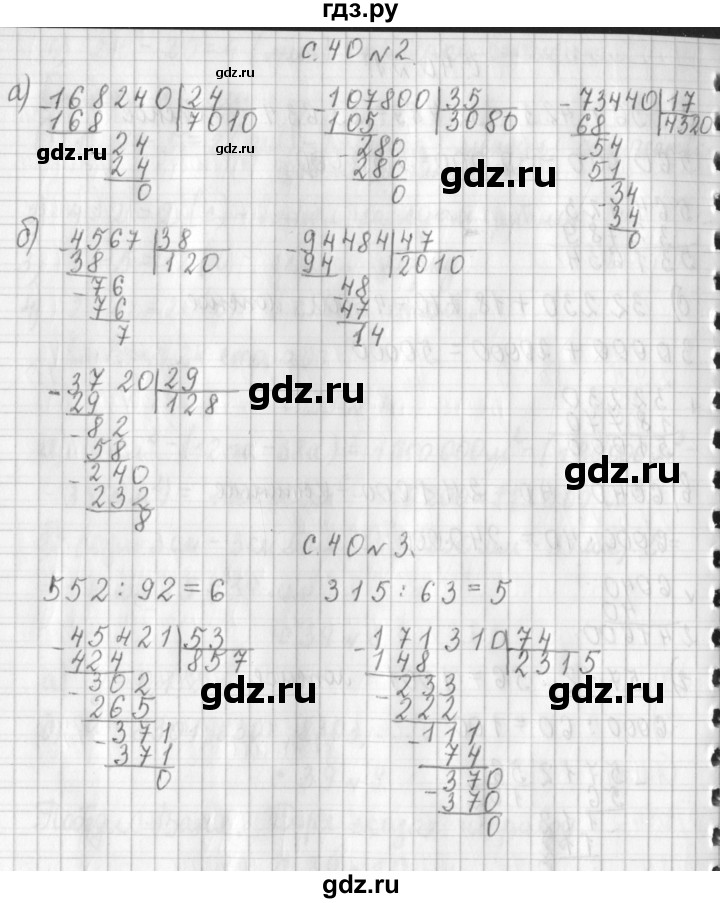 гдз.ру
с. 40 № 2
gdz.ru
а) -168240|24 -107800|35 -73440|17
168 7010 105 3080 68 4320
gdz.ru
24 -280 -54
gdz.ru
24 280 51
gdz.ru
0 0 -34
34
0
б) -4567|38 -94484|47
38 120 94 2010
-76 -48
76 47
7 14
-3720|29
gdz.ru
29 128
-82
58
gdz.ru
-240
232
8
с. 40 № 3.
552 : 92 = 6 315 : 63 = 5
-45421|53 -171310|74
424 857 148 2315
-302 -233
gdz.ru
gdz.ru
265 222
-371 -111
371 74
0 -370
370
0
gdz.ru